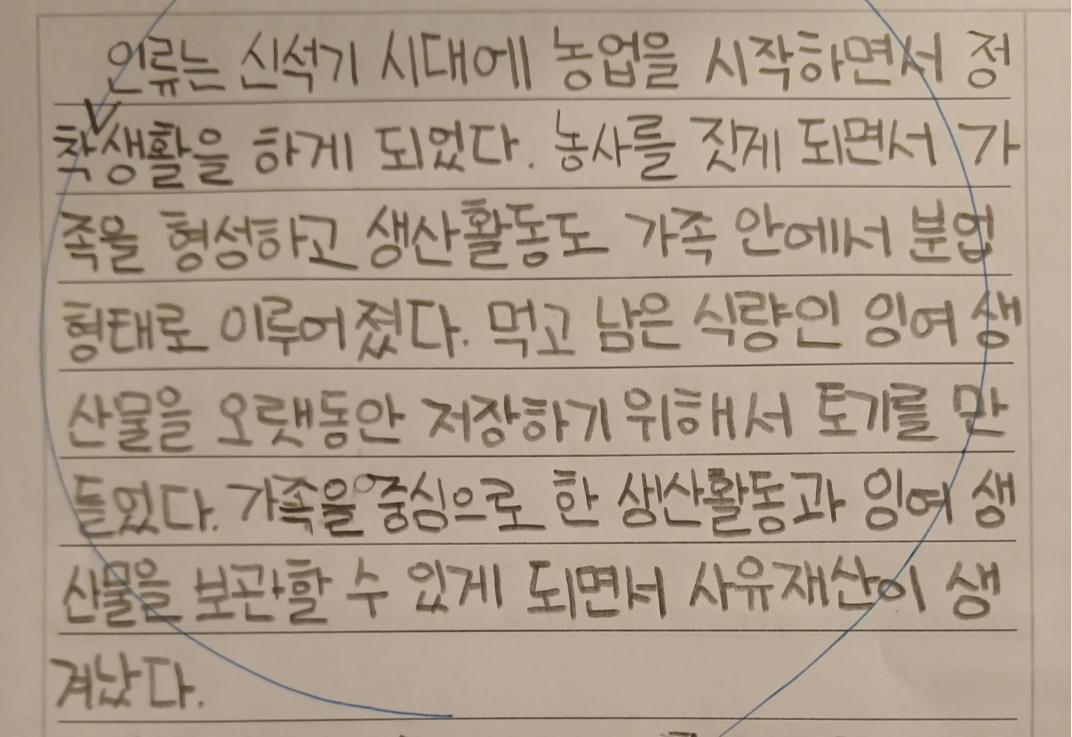 인류는 신석기 시대에 농업을 시작하면서 정
착생활을 하게 되었다. 농사를 짓게 되면서 가
족을 형성하고 생산활동도 가족 안에서 분업
형태로 이루어졌다. 먹고 남은 식량인 잉여 생
산물을 오랫동안 저장하기 위해서 토기를 만
들었다. 가족을 중심으로 한 생산활동과 잉여 생
산물을 보관할 수 있게 되면서 사유재산이 생
겨났다.